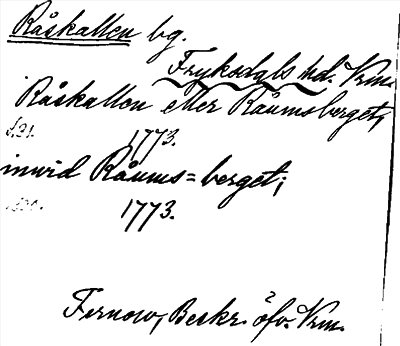 Råskallen bg.
Fryksdgls hd. Vrm.
Råskallen eller Råumsberget;
s. 21. 1773.
inwid Råums=berget;
1773.
Fernow, Beskr. öfv. Vrm.